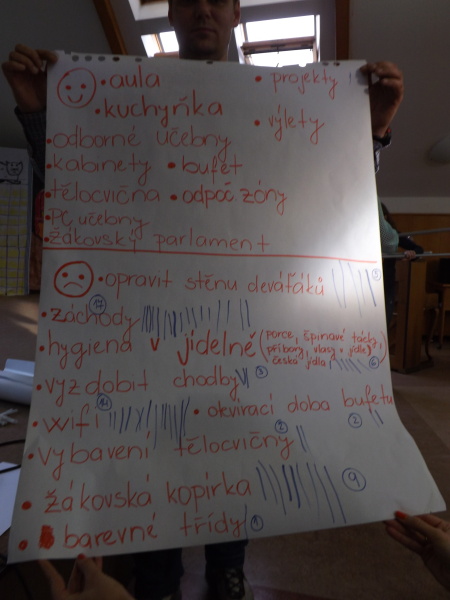 • aula • projekty
• kuchyňka
• výlety
• odborné učebny
• kabinety • bufet
• tělocvična • odpoč. zóny
• PC učebny
• žákovský parlament
• opravit stěnu deváťáků
• záchody 17
• hygiena v jídelně (porce, špinavé tácky,
příbory, vlasy v jídle,
česká jídla) 6
• vyzdobit chodby 3
• wifi • otevírací doba bufetu 2
• vybavení tělocvičny 2
• žákovská kopírka 9
• barevné třídy 1